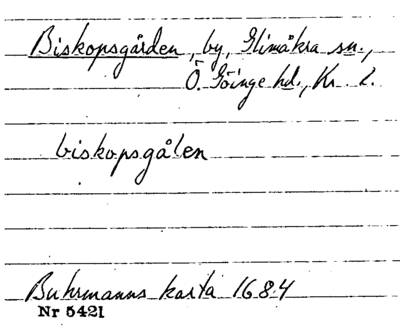 Biskopsgården, by, Glimåkra sn.,
Ö. Göinge hd., Kr. l.
biskopsgålen
Buhrmanns karta 1684
Nr 5421